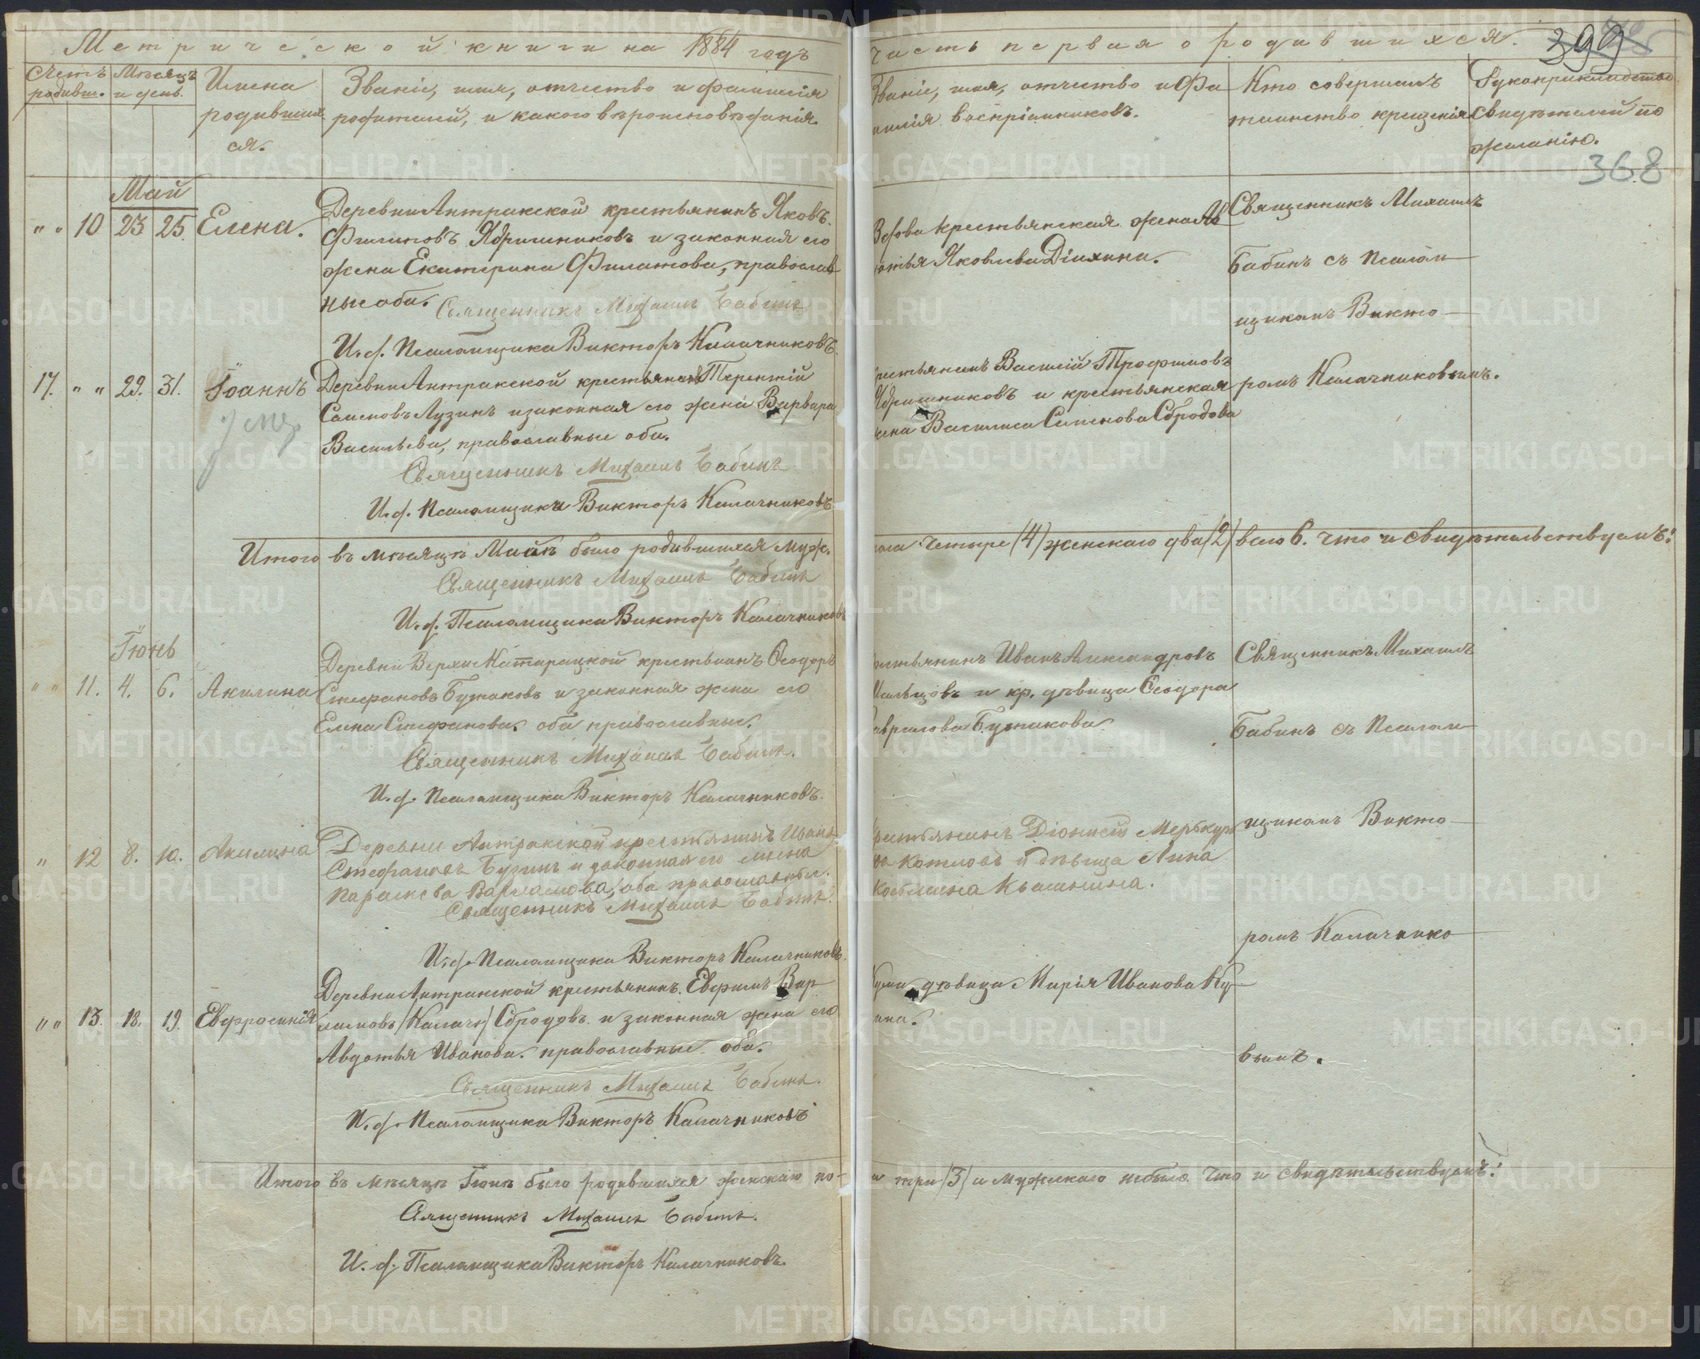 Метрической книги на 1884 годъ
часть первая о родившихся.
399
Счетъ родивш.
Мѣсяцъ и день.
Имена
родивших
ся.
Званіе, имя, отчество и фамилія
родителей, и какого вѣроисповѣданія.
Званіе, имя, отчество и Фа
милія воспріемниковъ.
Кто совершалъ
таинство крещенія
Рукоприкладство
свидѣтелей по
желанію.
368
Май
" " 10 23 25 Елена.
Деревни Антракской крестьянинъ Яковъ
Филиповъ Ябришниковъ и законная его
жена Екатерина Филатова, православ
ные оба. Священникъ Михаилъ Бабинъ
И. д. Псаломщика Викторъ Калачниковъ
крестьянская жена Ав
дотья Яковлева
Священникъ Михаилъ
Бабинъ съ Псалом
щикомъ Викто
ромъ Калачниковымъ.
17. " " 29. 31. Іоаннъ
Деревни Антракской крестьянинъ Терентій
Семеновъ Лузинъ и законная его жена Варвара
Васильева, православные оба.
Священникъ Михаилъ Бабинъ
И. д. Псаломщика Викторъ Калачниковъ
крестьянинъ Василій Трофимовъ
Ябришниковъ и крестьянская
жена Василиса Семенова Сбродова
Итого въ мѣсяцѣ Маѣ было родившихся муж.
пола четыре (4) женскаго два (2) всего 6. что и свидѣтельствуемъ:
Священникъ Михаилъ Бабинъ
И. д. Псаломщика Викторъ Калачниковъ
Іюнь
" " 11. 4. 6. Акилина
Деревни Верхне Катарацкой крестьянинъ Ѳеодоръ
Стефановъ Бутаковъ и законная жена его
Елена Стефанова. оба православные.
Священникъ Михаилъ Бабинъ.
И. д. Псаломщика Викторъ Калачниковъ.
крестьянинъ Иванъ Александровъ
и кр. дѣвица Ѳеодора
Гаврилова Бутакова
Священникъ Михаилъ
Бабинъ съ Псалом
щикомъ Викто
ромъ Калачнико
вымъ.
" 12 8. 10. Акилина
Деревни Антракской крестьянинъ Иванъ
Стефановъ и законная его жена
Параскева Варламова, оба православны.
Священникъ Михаилъ Бабинъ.
И. д. Псаломщика Викторъ Калачниковъ.
крестьянинъ Діонисій Меркурь
Котловъ и дѣвица Анна
" " 13. 18. 19. Евфросинія
Деревни Антракской крестьянинъ Евфимъ Вар
ламовъ (Калач) Сбродовъ и законная жена его
Авдотья Иванова. православные оба.
Священникъ Михаилъ Бабинъ.
И. д. Псаломщика Викторъ Калачниковъ
дѣвица Марія Иванова Ку
Итого въ мѣсяцѣ Іюнѣ было родившихся женскаго по-
ла три (3) а мужскаго небыло. Что и свидѣтельствуемъ:
Священникъ Михаилъ Бабинъ.
И. д. Псаломщика Викторъ Калачниковъ.
METRIKI.GASO-URAL.RU